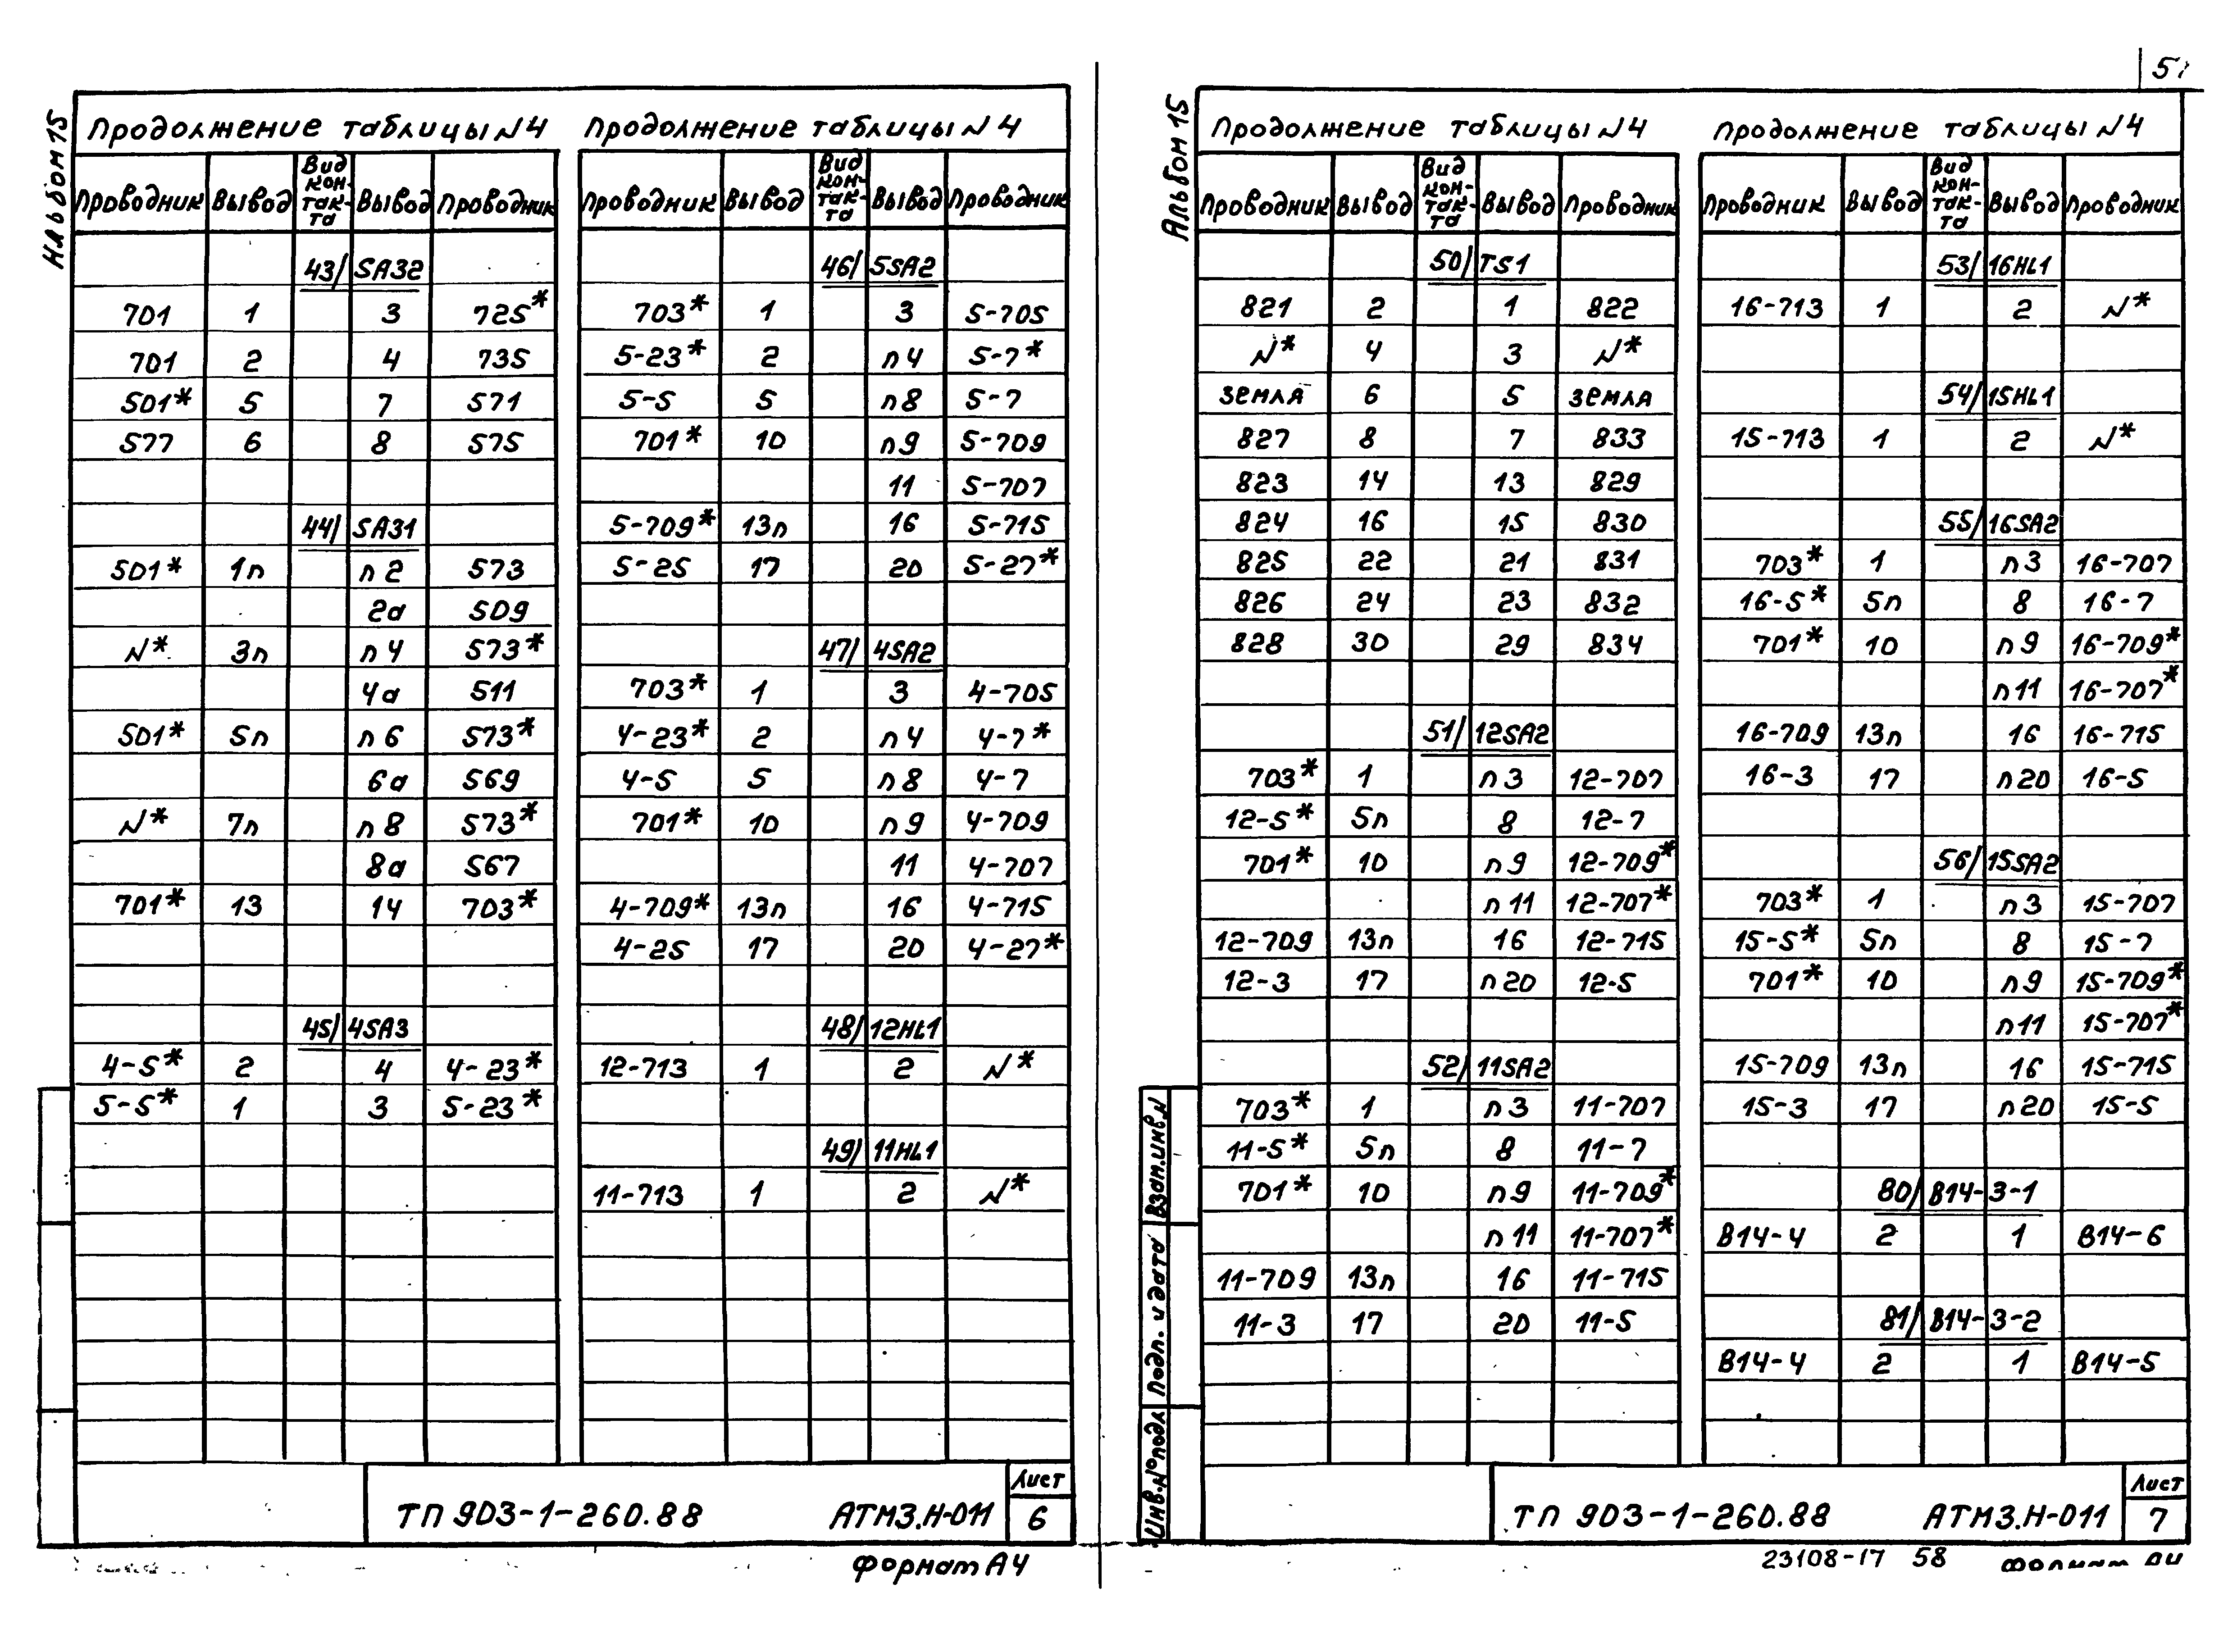 57
Альбом 15
Продолжение таблицы N4
Проводник Вывод Вид контакта Вывод Проводник
43/ SA32
701 1 3 725*
701 2 4 735
501* 5 7 571
577 6 8 575
44/ SA31
501* 1п п2 573
2а 509
N* 3п п4 573*
4а 511
501* 5п п6 573*
6а 569
N* 7п п8 573*
8а 567
701* 13 14 703*
45/ 4SA3
4-5* 2 4 4-23*
5-5* 1 3 5-23*
Продолжение таблицы N4
Проводник Вывод Вид кон-так-та Вывод Проводник
46/ 5SA2
703* 1 3 5-705
5-23* 2 п4 5-7*
5-5 5 п8 5-7
701* 10 п9 5-709
11 5-707
5-709* 13п 16 5-715
5-25 17 20 5-27*
47/ 4SA2
703* 1 3 4-705
4-23* 2 п4 4-7*
4-5 5 п8 4-7
701* 10 п9 4-709
11 4-707
4-709* 13п 16 4-715
4-25 17 20 4-27*
48/ 12HL1
12-713 1 2 N*
49/ 11HL1
11-713 1 2 N*
ТП 903-1-260.88 АТМ3.Н-011 Лист 6
Формат А4
Альбом 15
Продолжение таблицы N4
Проводник Вывод Вид кон-так-та Вывод Проводник
50/ TS1
821 2 1 822
N* 4 3 N*
земля 6 5 земля
827 8 7 833
823 14 13 829
824 16 15 830
825 22 21 831
826 24 23 832
828 30 29 834
51/ 12SA2
703* 1 п3 12-707
12-5* 5п 8 12-7
701* 10 п9 12-709*
п11 12-707*
12-709 13п 16 12-715
12-3 17 п20 12-5
52/ 11SA2
703* 1 п3 11-707
11-5* 5п 8 11-7
701* 10 п9 11-709*
п11 11-707*
11-709 13п 16 11-715
11-3 17 20 11-5
Продолжение таблицы N4
Проводник Вывод Вид кон-так-та Вывод Проводник
53/ 16HL1
16-713 1 2 N*
54/ 15HL1
15-713 1 2 N*
55/ 16SA2
703* 1 п3 16-707
16-5* 5п 8 16-7
701* 10 п9 16-709*
п11 16-707*
16-709 13п 16 16-715
16-3 17 п20 16-5
56/ 15SA2
703* 1 п3 15-707
15-5* 5п 8 15-7
701* 10 п9 15-709*
п11 15-707*
15-709 13п 16 15-715
15-3 17 п20 15-5
80/ В14-3-1
В14-4 2 1 В14-6
81/ В14-3-2
В14-4 2 1 В14-5
Взам.инв.N
Подп. и дата
Инв.№подл
ТП 903-1-260.88 АТМ3.Н-011 Лист 7
23108-17 58 Формат А4